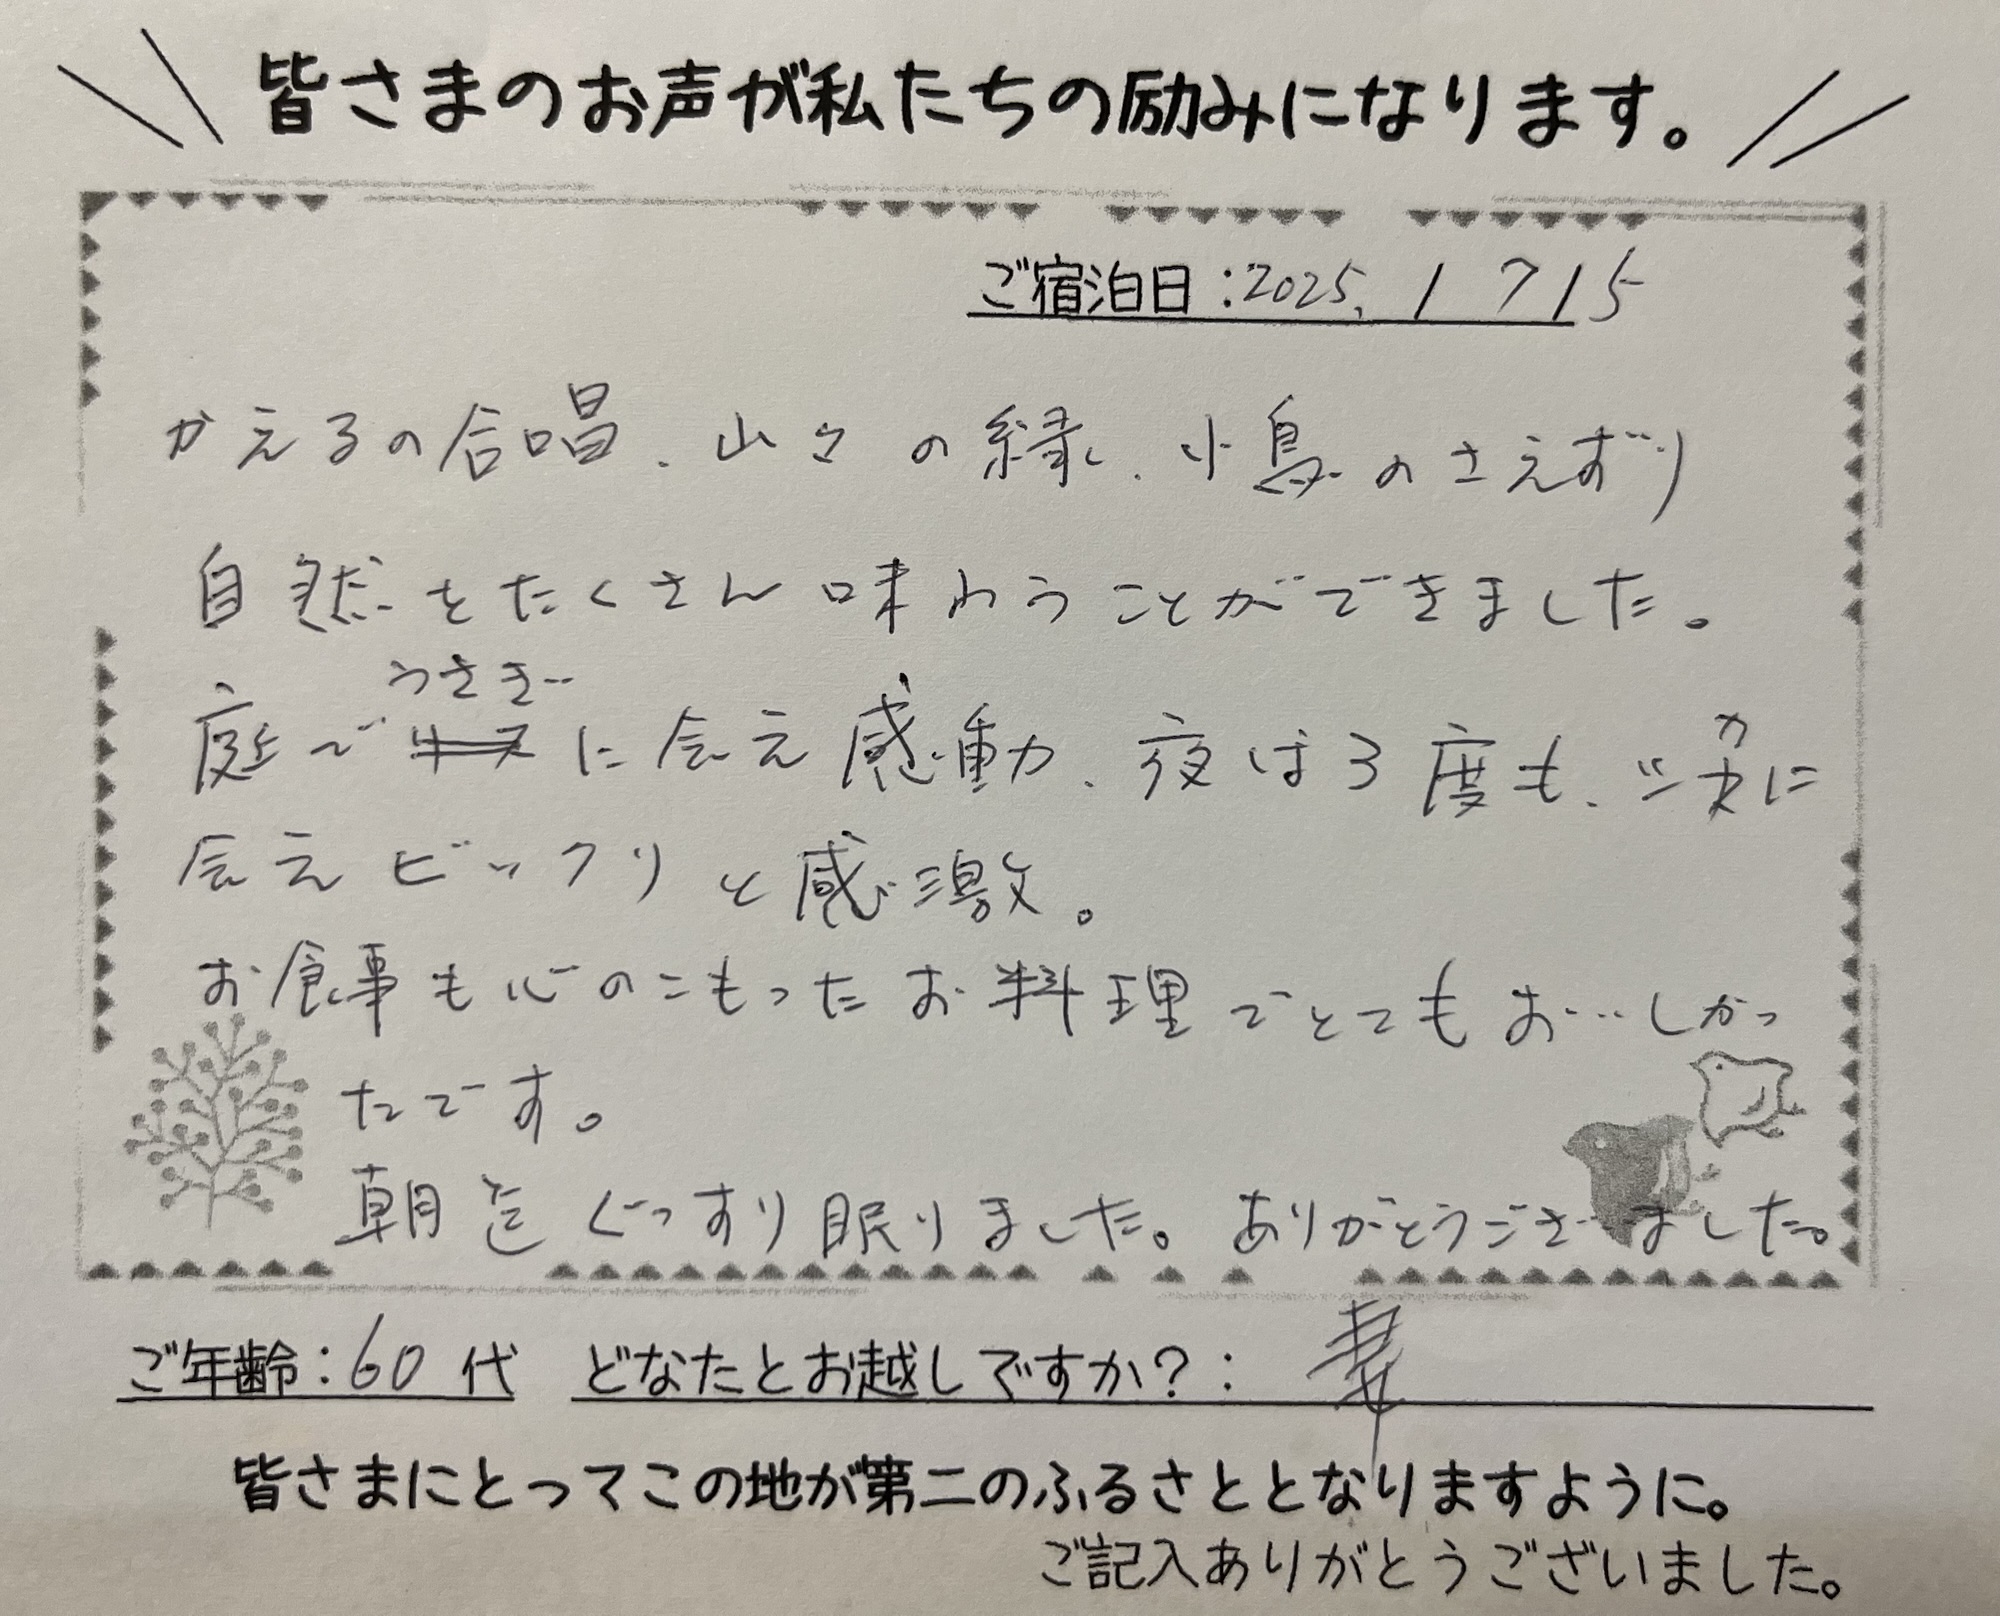 皆さまのお声が私たちの励みになります。
ご宿泊日:2025. 1 7 15
かえるの合唱、山々の緑、小鳥のさえずり
自然をたくさん味わうことができました。
うさぎ
庭でに会え感動、夜は3度も、に
会えビックリと感激。
お食事も心のこもったお料理でとてもおいしかっ
たです。
朝迄ぐっすり眠りました。ありがとうございました。
ご年齢:60代 どなたとお越しですか?: 妻
皆さまにとってこの地が第二のふるさととなりますように。
ご記入ありがとうございました。